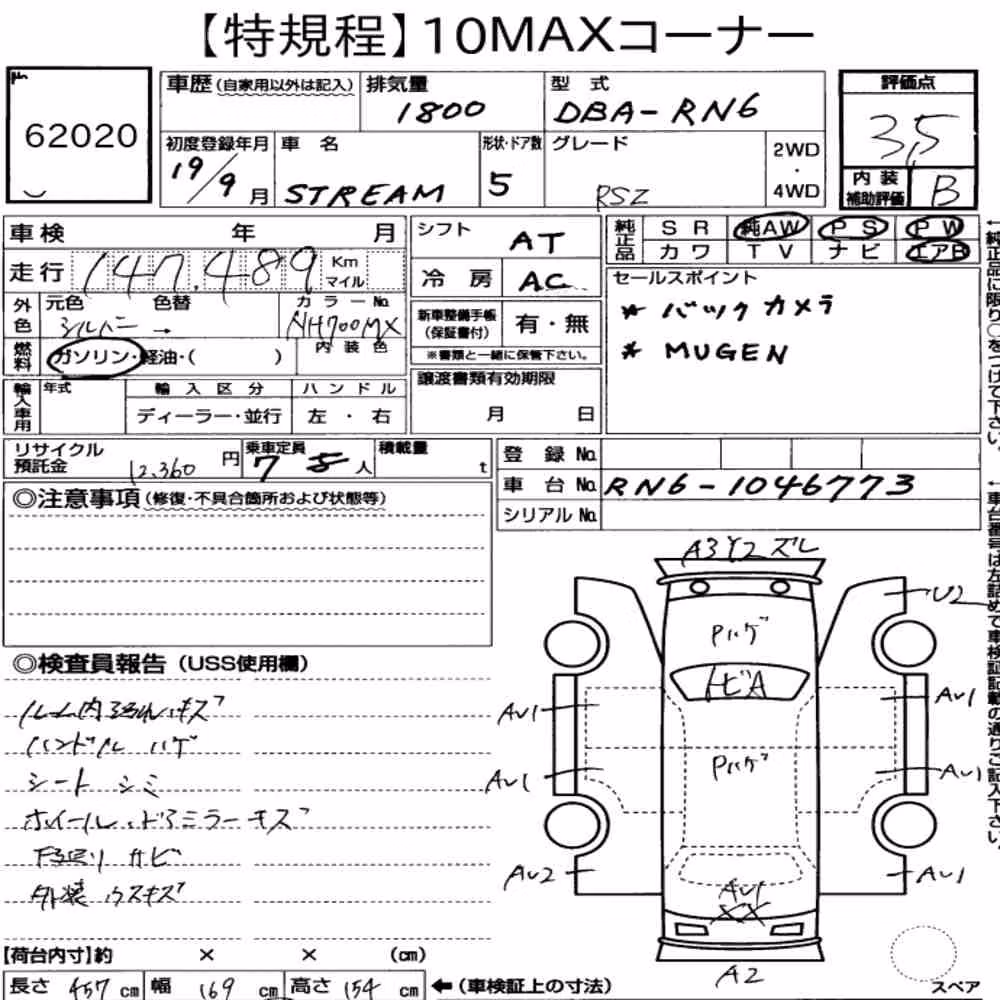 【特規程】10MAXコーナー
62020
車歴(自家用以外は記入) 排気量 型式 評価点
1800 DBA-RN6 3,5
初度登録年月 車名 形状・ドア数 グレード 2WD・4WD
19/9月 STREAM 5 RSZ
内装補助評価 B
車検 年 月
走行 147,489 Km マイル
外色 元色 色替 カラーNo.
シルバー → NH700MX
燃料 ガソリン・軽油・( ) 内装色
輸入車用 年式 輸入区分 ハンドル
ディーラー・並行 左・右
シフト AT
冷房 AC
新車整備手帳(保証書付) 有・無
※書類と一緒に保管下さい。
譲渡書類有効期限
月 日
純正品 SR 純AW PS PW
カワ TV ナビ エアB
セールスポイント
* バックカメラ
* MUGEN
←純正品に限り○をつけて下さい。
リサイクル預託金 12,360円 乗車定員 7 人 積載量 t
登録No.
車台No. RN6-1046773
シリアルNo.
←車台番号は左詰めで車検証記載の通りご記入下さい。
◎注意事項(修復・不具合箇所および状態等)
◎検査員報告(USS使用欄)
ハンドル ハゲ
シート シミ
ホイール、ドアミラー キズ
下回り サビ
外装 ウスキズ
A3Y2ズレ
U2
Pハゲ
トビA
AU1 AU1
Pハゲ
AU1 AU1
AU2 AU1
AU1
XX
A2
スペア
【荷台内寸】約 × × (cm)
長さ 457 cm 幅 169 cm 高さ 154 cm ←(車検証上の寸法)